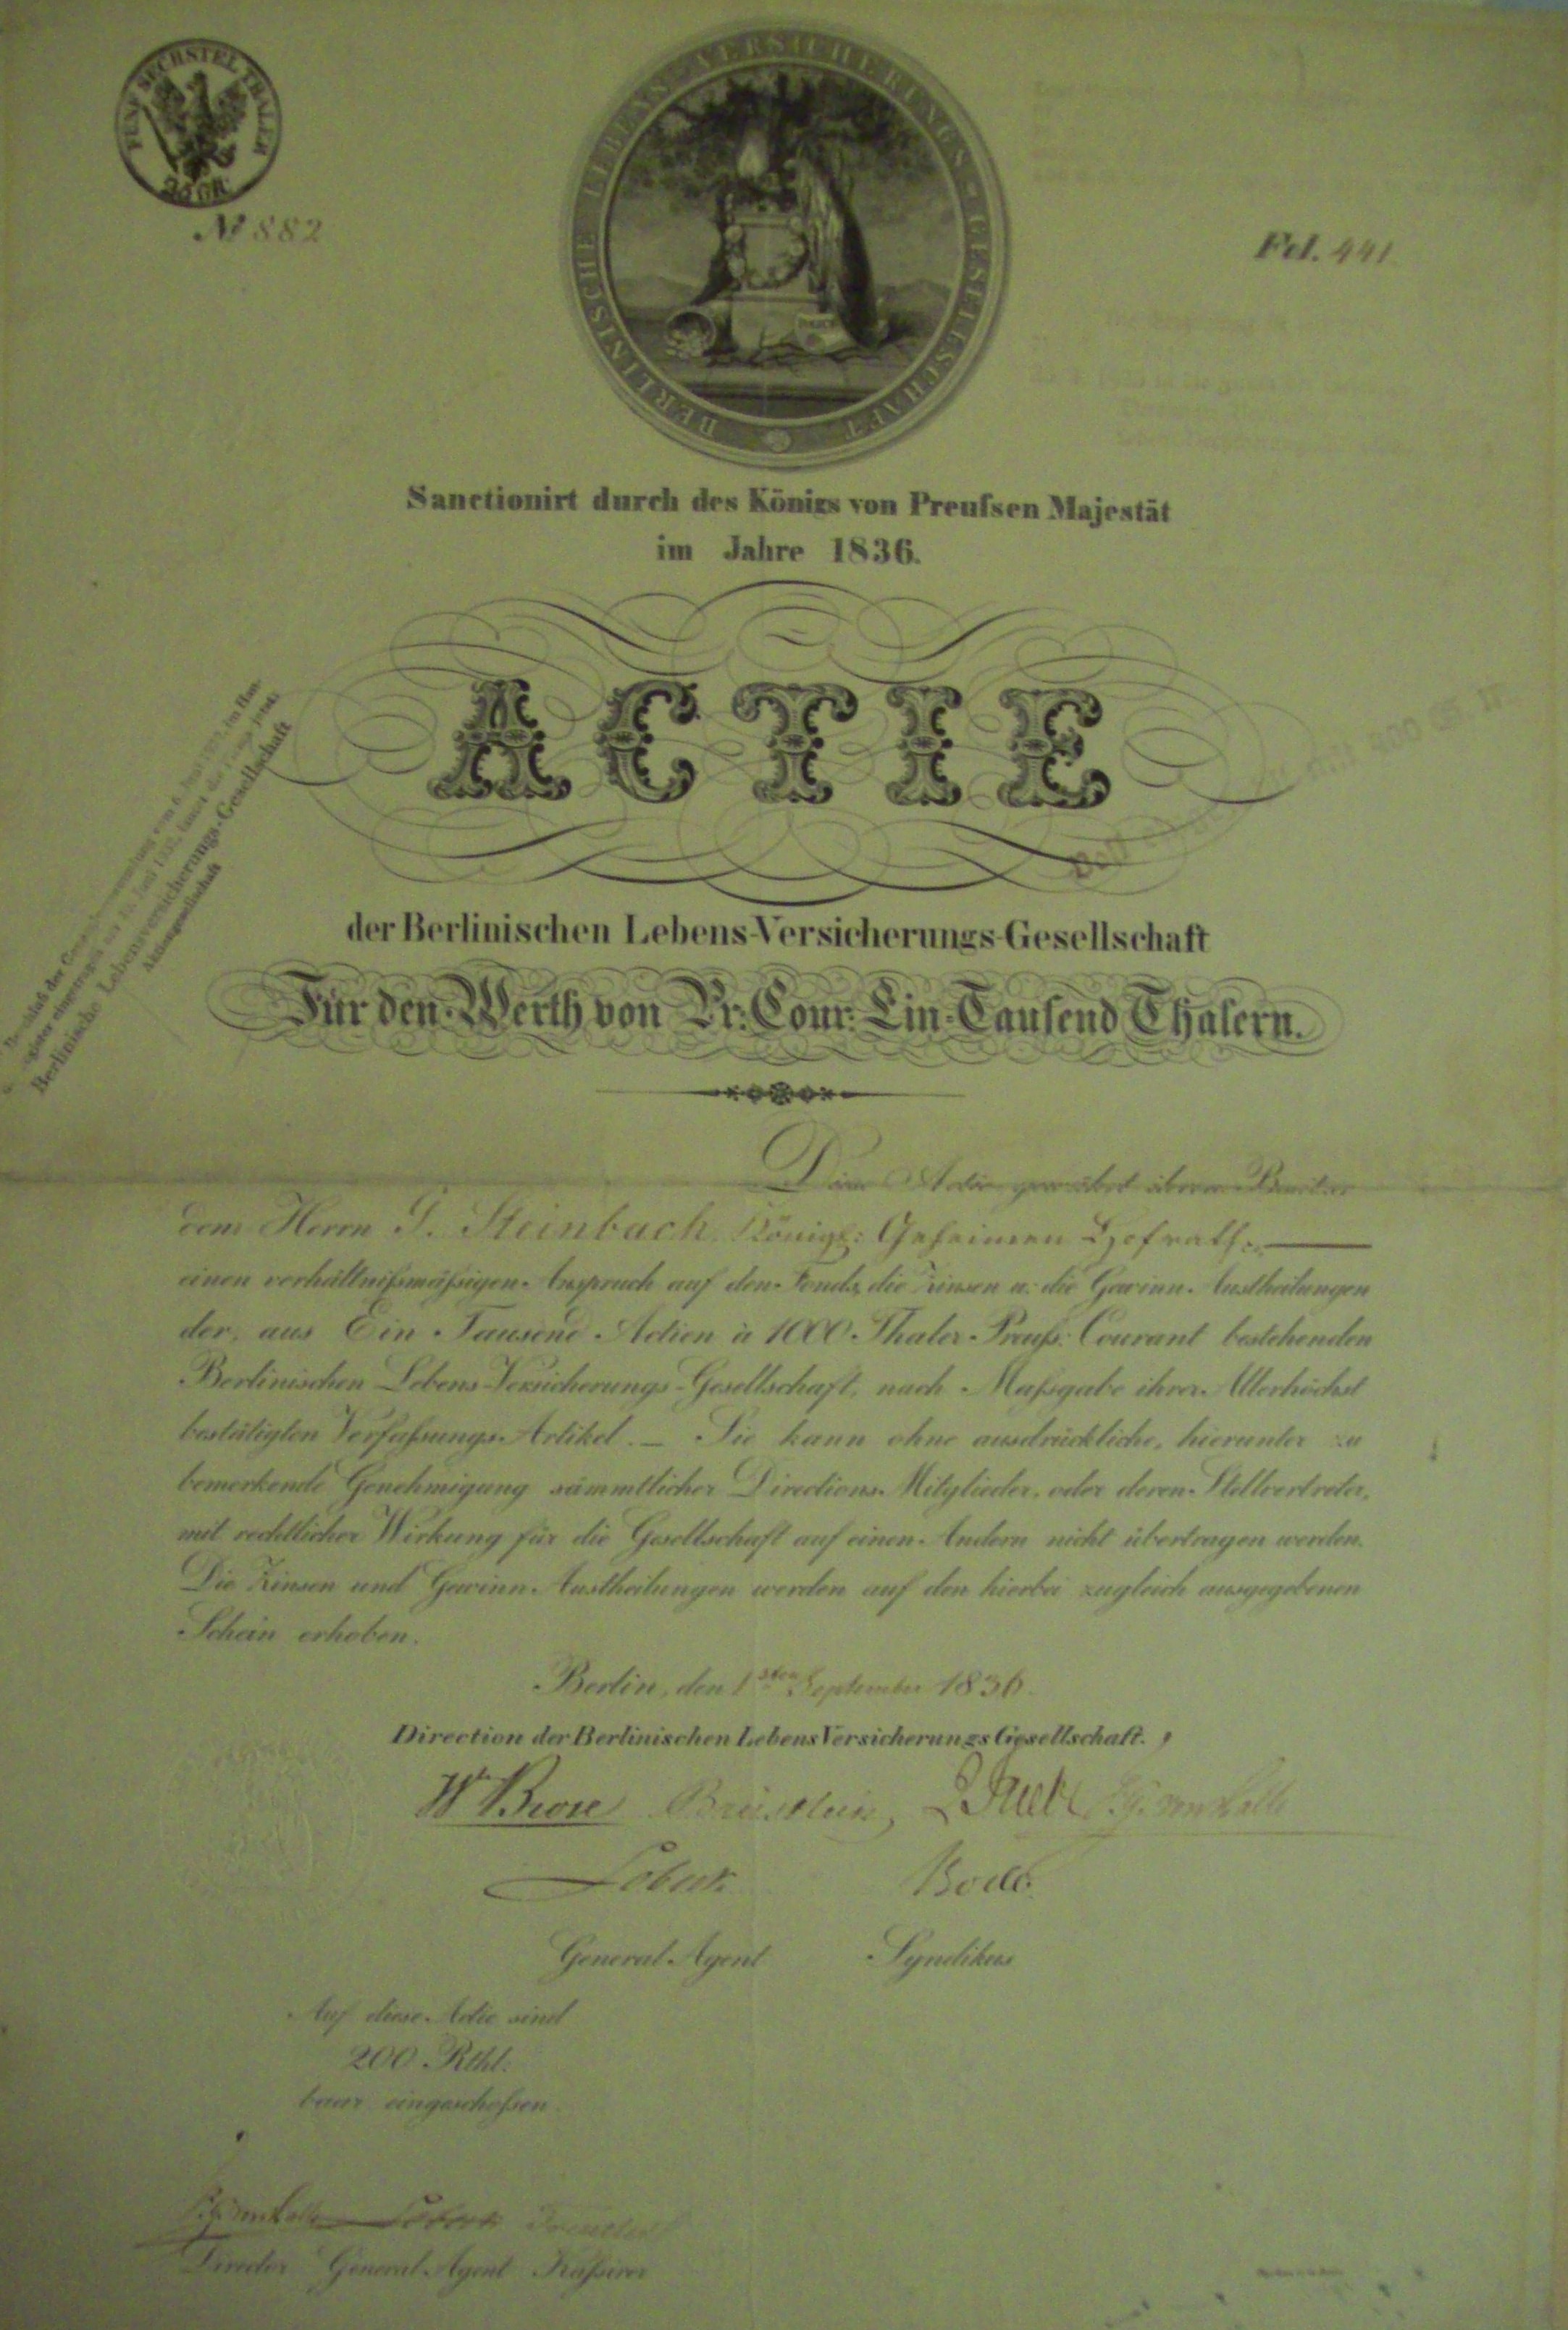 FÜNF SECHSTEL THALER
25 GR.
№ 882
BERLINISCHE LEBENS-VERSICHERUNGS-GESELLSCHAFT
Fol. 441
Sanctionirt durch des Königs von Preuſsen Majestät
im Jahre 1836.
ACTIE
Berlinische Lebensversicherungs-Gesellschaft
Aktiengesellschaft
der Berlinischen Lebens-Versicherungs-Gesellschaft
Für den Werth von Pr: Cour: Ein Tausend Thalern.
Diese Actie gewährt ihrem Besitzer
dem Herrn J. Steinbach Königl: Geheimen Hofrath
einen verhältniſsmäſsigen Anspruch auf den Fonds, die Zinsen u. die Gewinn-Austheilungen
der, aus Ein Tausend Actien à 1000 Thaler Preuſs: Courant bestehenden
Berlinischen Lebens-Versicherungs-Gesellschaft, nach Maſsgabe ihrer Allerhöchst
bestätigten Verfaſsungs-Artikel. — Sie kann ohne ausdrückliche, hierunter zu
bemerkende Genehmigung sämmtlicher Directions-Mitglieder, oder deren Stellvertreter,
mit rechtlicher Wirkung für die Gesellschaft auf einen Andern nicht übertragen werden.
Die Zinsen und Gewinn-Austheilungen werden auf den hierbei zugleich ausgegebenen
Schein erhoben.
Berlin, den 1sten September 1836.
Direction der Berlinischen Lebens Versicherungs Gesellschaft.
W Brose
Lobeck Bode
General-Agent Syndikus
Auf diese Actie sind
200 Rthl:
baar eingeschoſsen.
Lobeck
Director General-Agent Kaſsirer